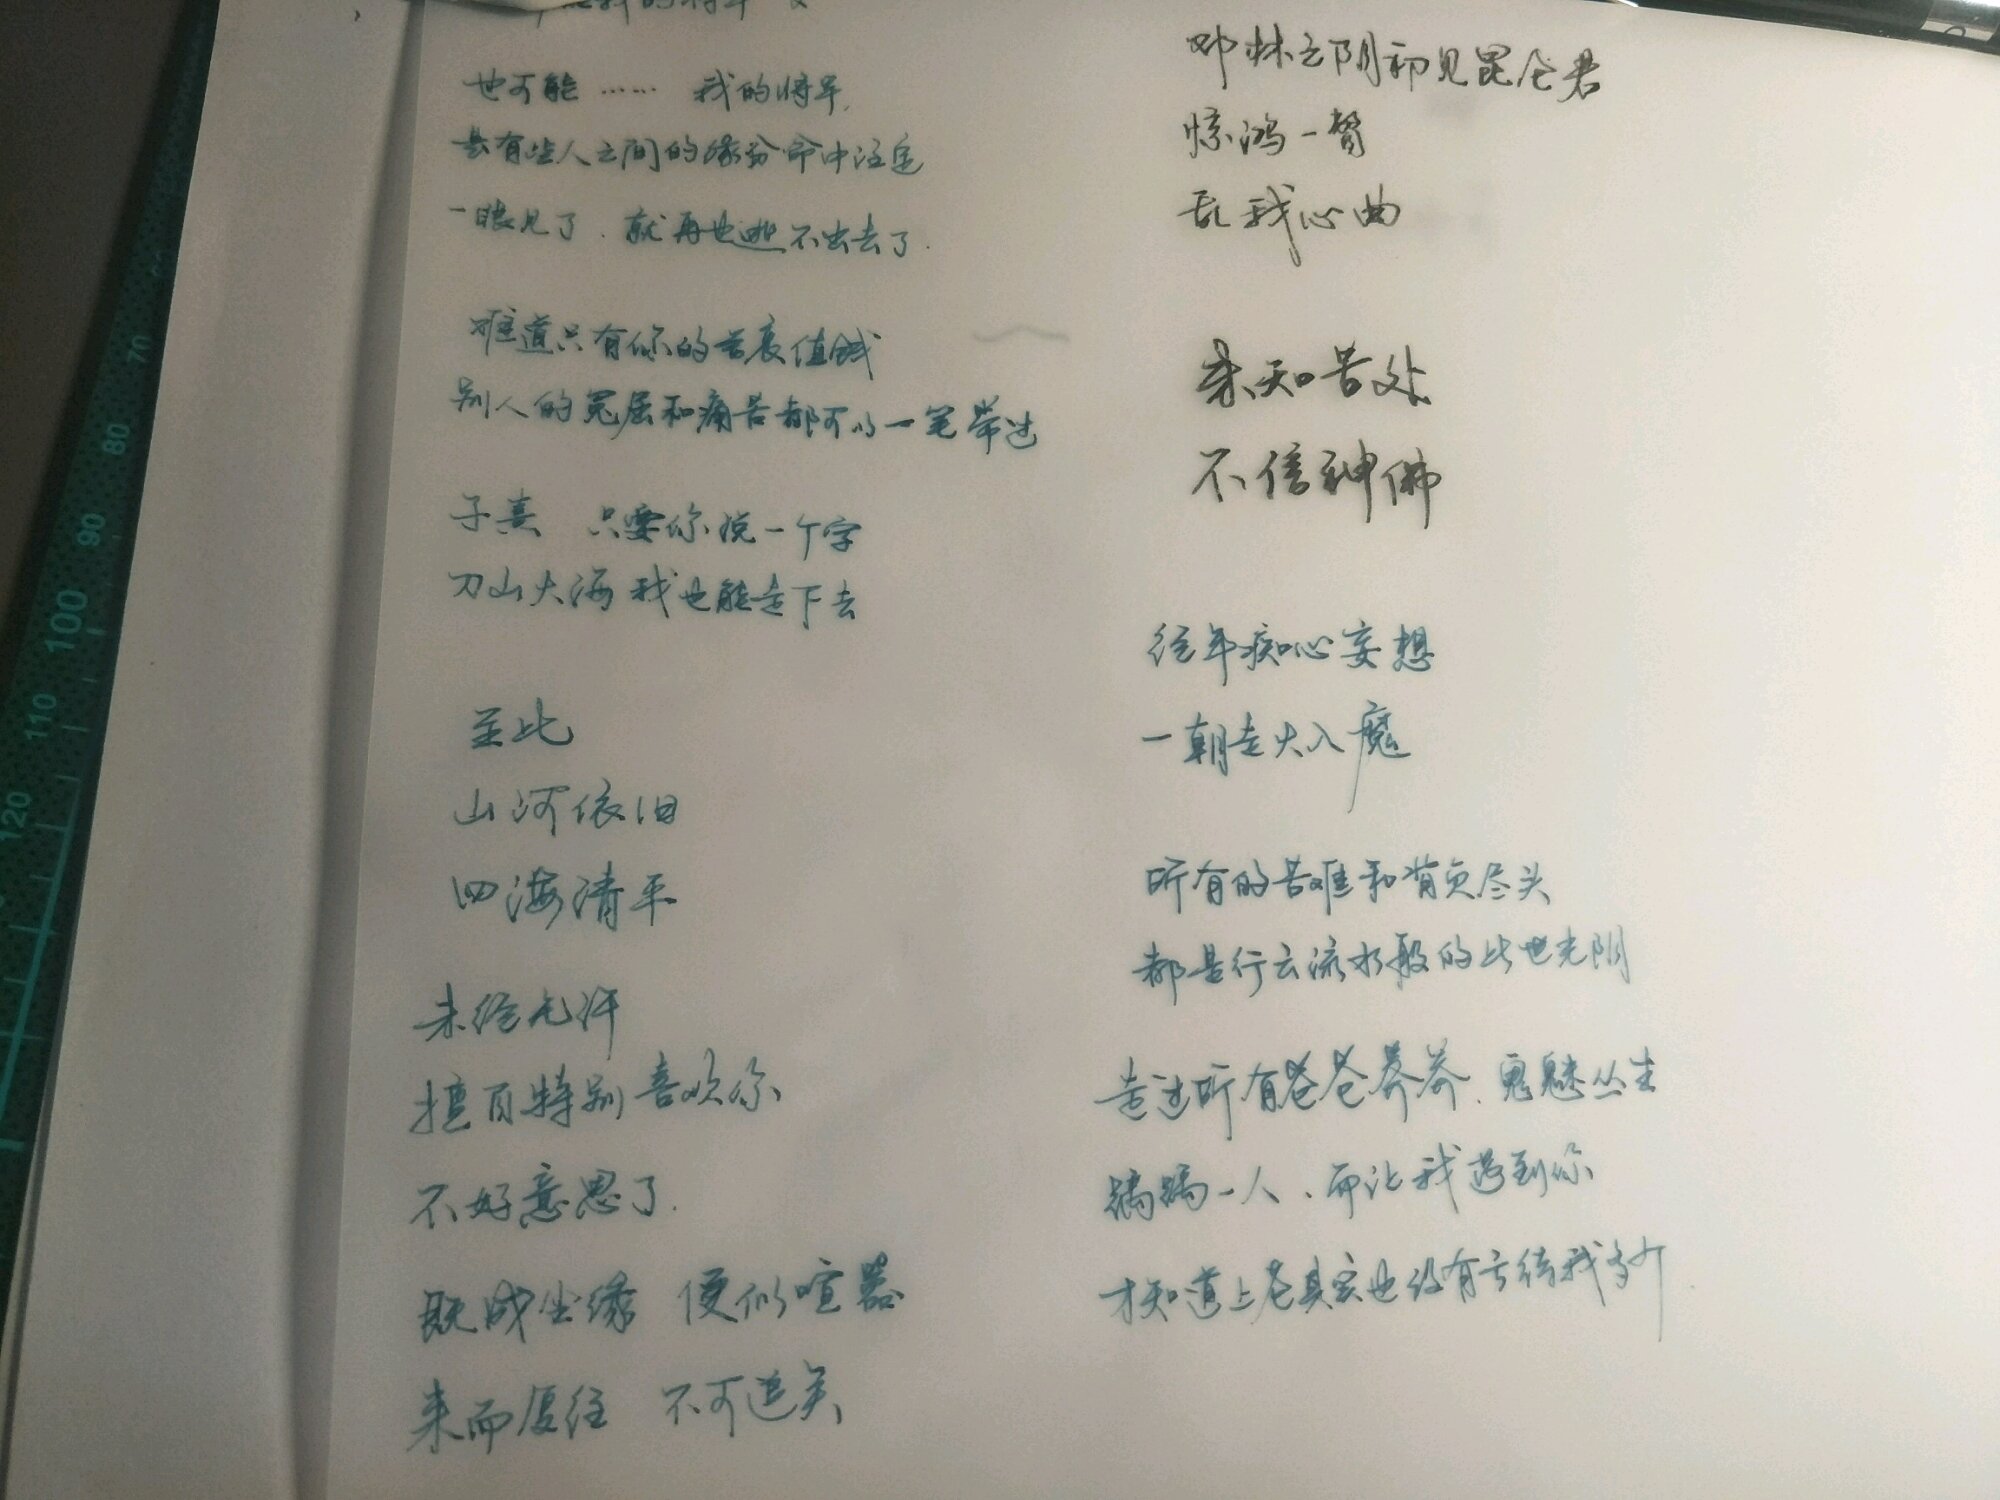 我的将军
也可能…… 我的将军,
是有些人之间的缘分命中注定
一眼见了.就再也逃不出去了.
难道只有你的苦衷值钱
别人的冤屈和痛苦都可以一笔带过
子熹 只要你说一个字
刀山火海我也能走下去
至此
山河依旧
四海清平
未经允许
擅自特别喜欢你
不好意思了.
既成尘缘 便似喧嚣
来而复往 不可追矣
邓林之阴初见昆仑君
惊鸿一瞥
乱我心曲
未知苦处
不信神佛
经年痴心妄想
一朝走火入魔
所有的苦难和背负尽头
都是行云流水般的此世光阴
走过所有苍苍莽莽、鬼魅丛生
踽踽一人、而让我遇到你
才知道上苍其实也没有亏待我多少